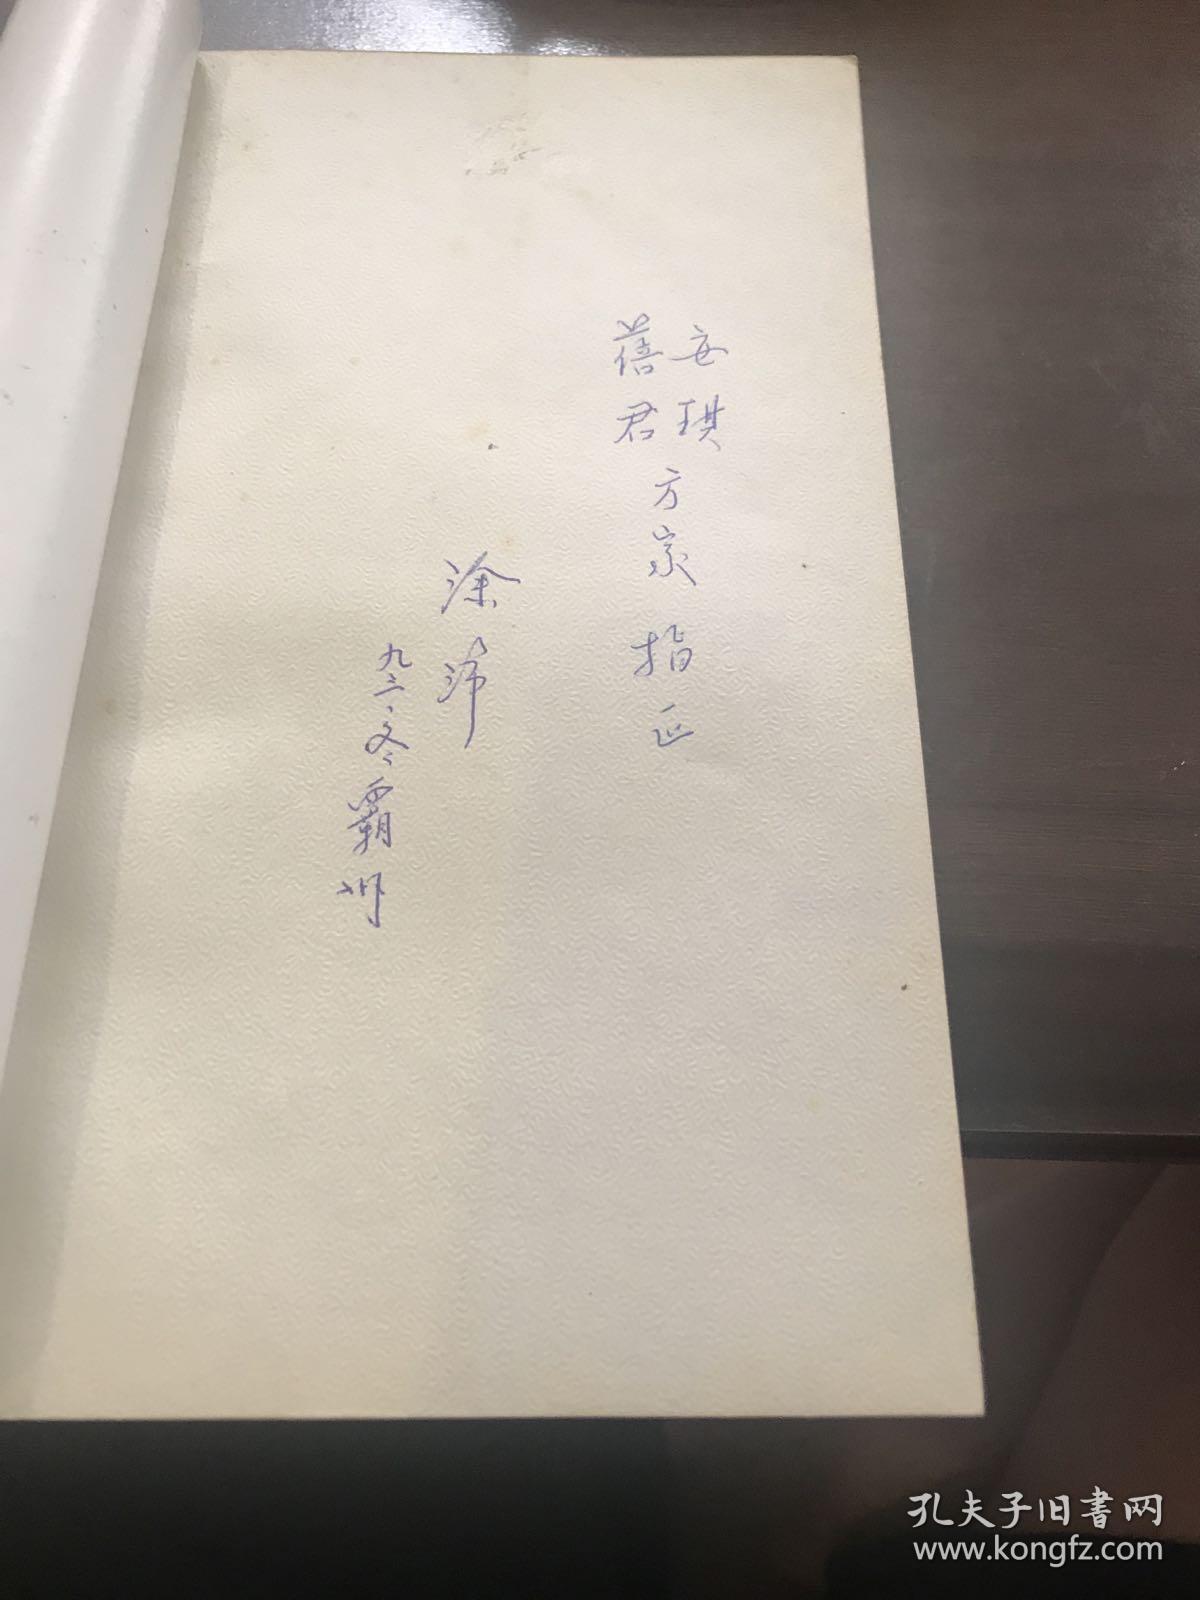 安琪
蓓君
方家指正
涂沛
九三、冬、霸州
孔夫子旧書网
www.kongfz.com